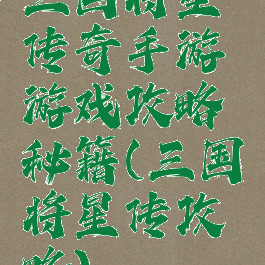 三国将星
传奇手游
游戏攻略
秘籍(三国
将星传攻
略)